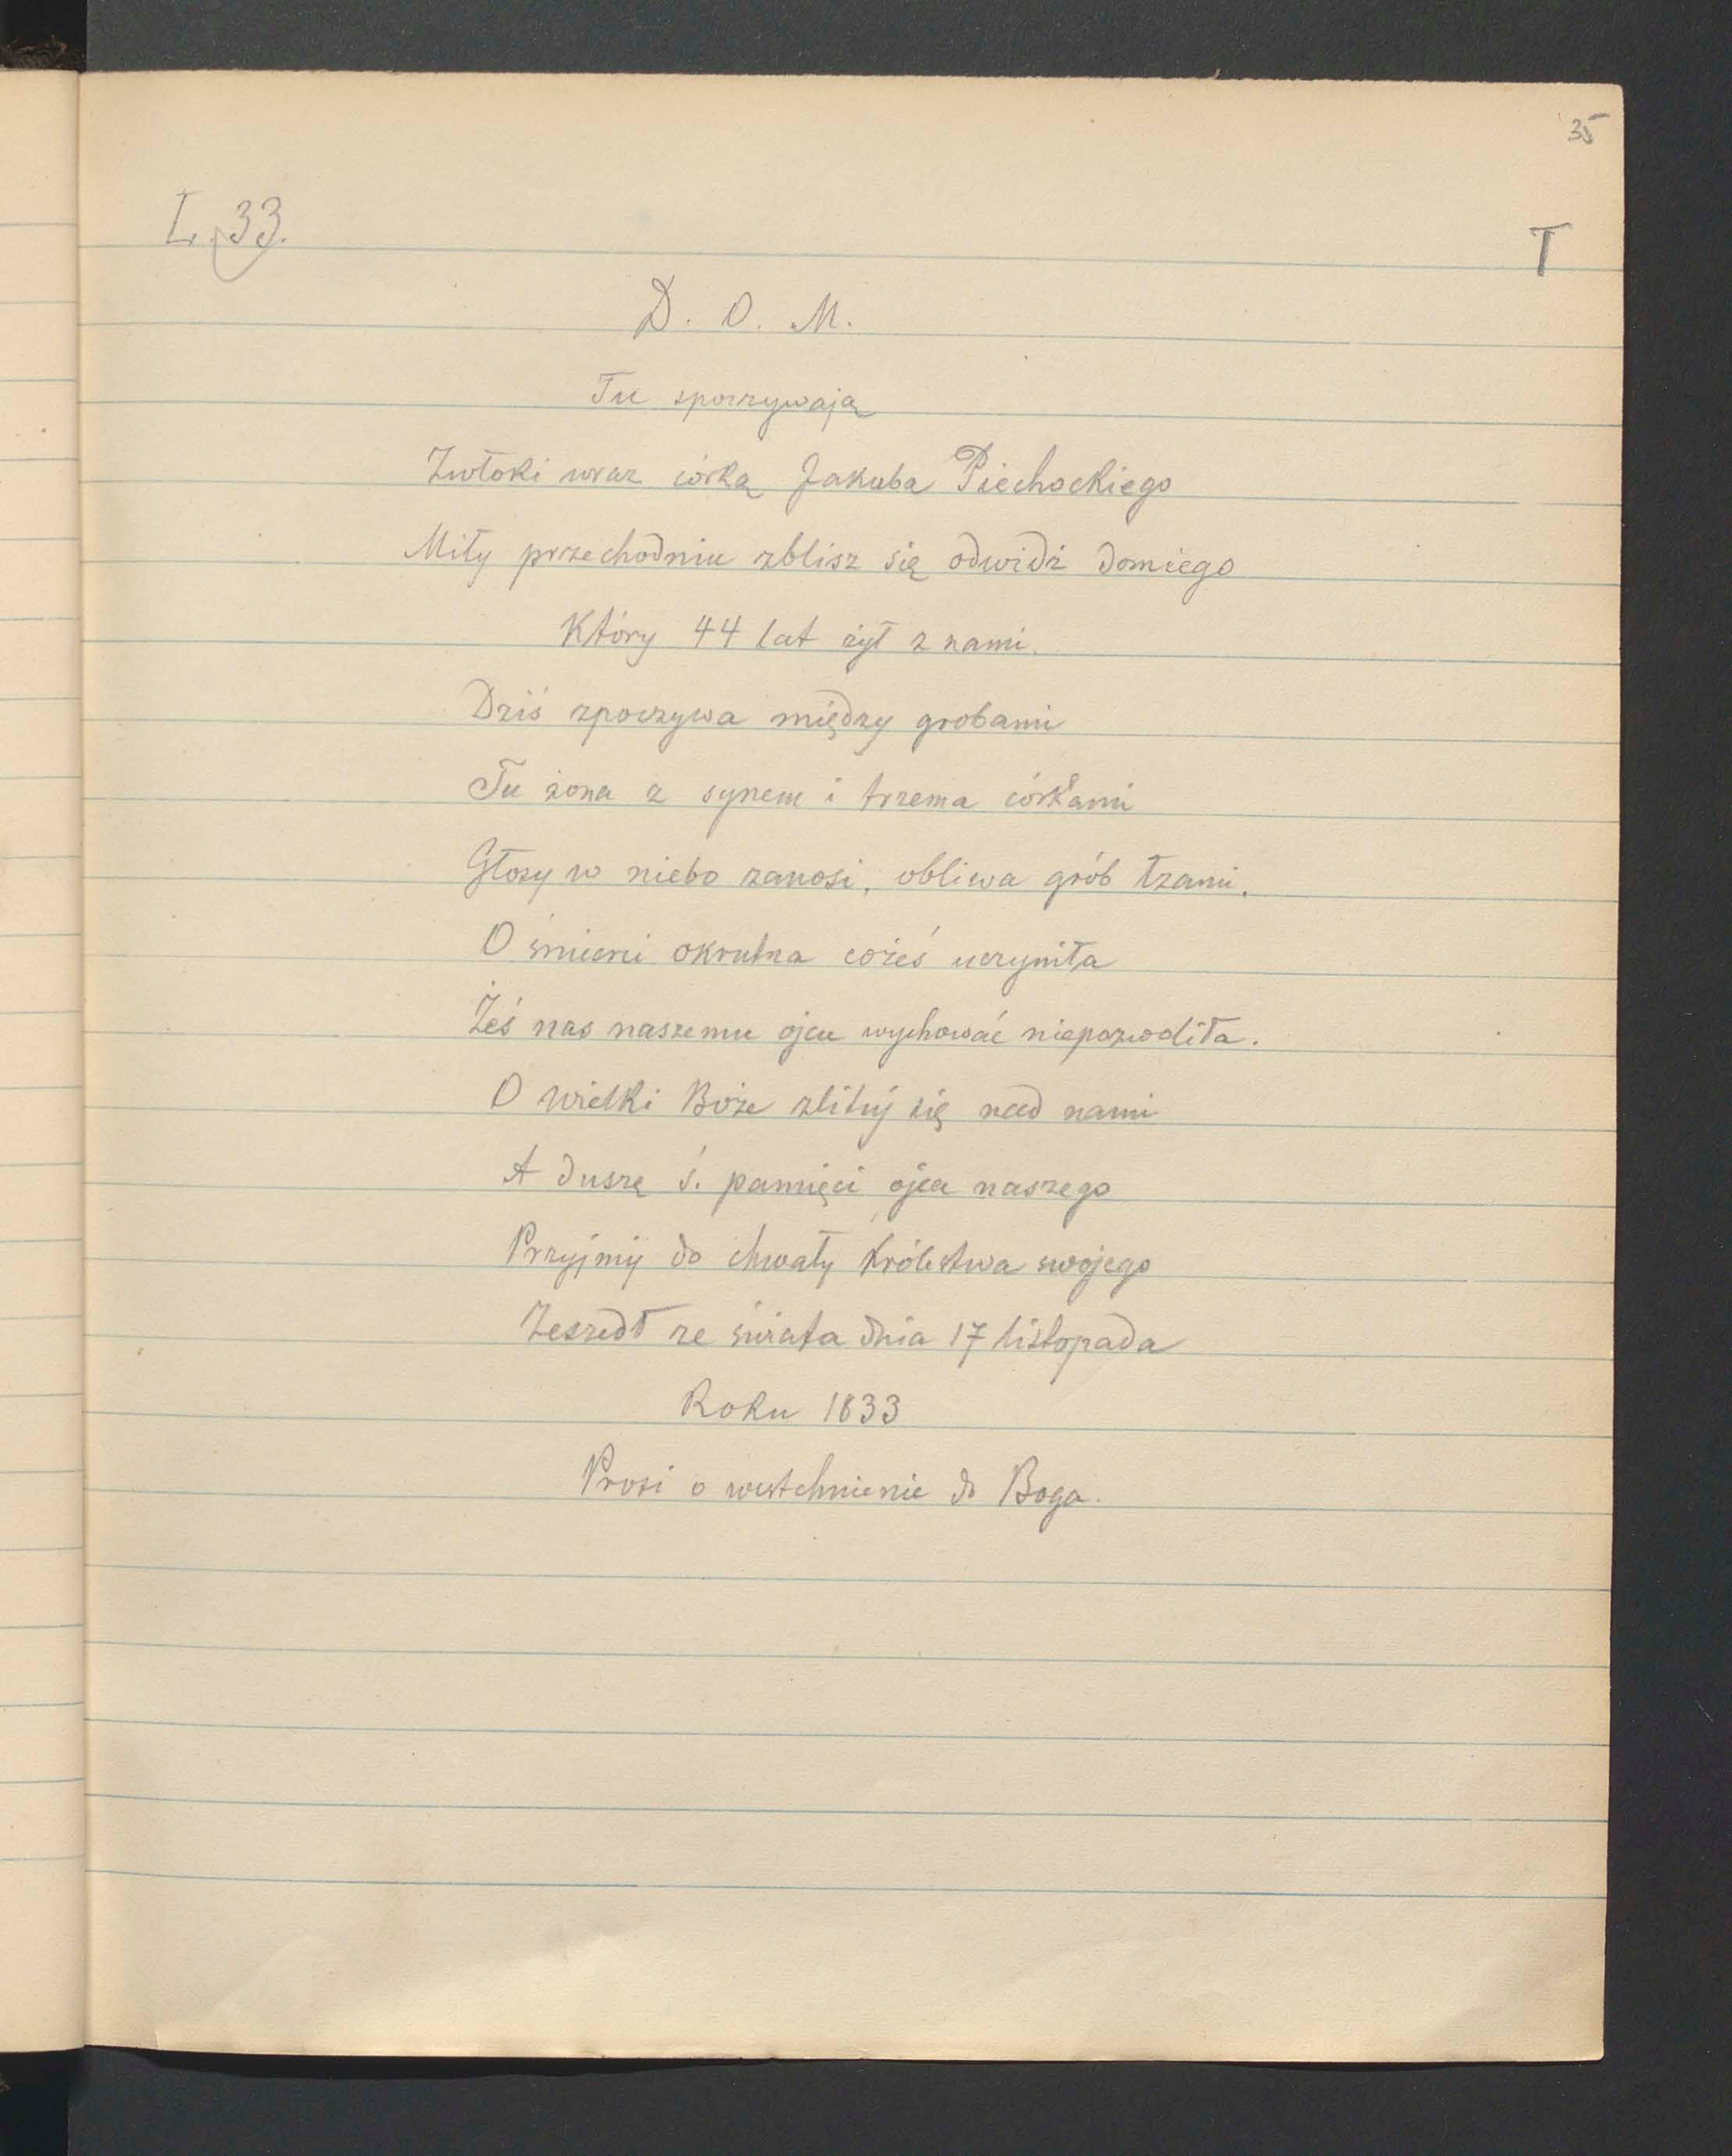 35
L. 33.
T
D. O. M.
Tu spoczywają
Zwłoki wraz córką Jakuba Piechockiego
Miły przechodniu zblisz się odwidź domiego
Który 44 lat żył z nami.
Dziś zpoczywa między grobami
Tu żona z synem i trzema córkami
Głosy w niebo zanosi, obliwa grób łzami.
O śmierci okrutna cożeś uczyniła
Żeś nas naszemu ojcu wychować niepozwoliła.
O wielki Boże zlituj się nad nami
A duszę ś. pamięci ojca naszego
Przyjmij do chwały królestwa swojego
Zeszedł ze świata dnia 17 listopada
Roku 1833
Prosi o westchnienie do Boga.